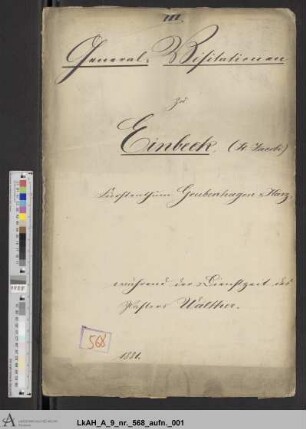 III.
General-Visitationen
zu
Einbeck. (St. Jacobi)
Fürstenthum Grubenhagen u. Harz
während der Dienstzeit des
Pastors Walther.
568
1881.
LkAH_A_9_nr._568_aufn._001